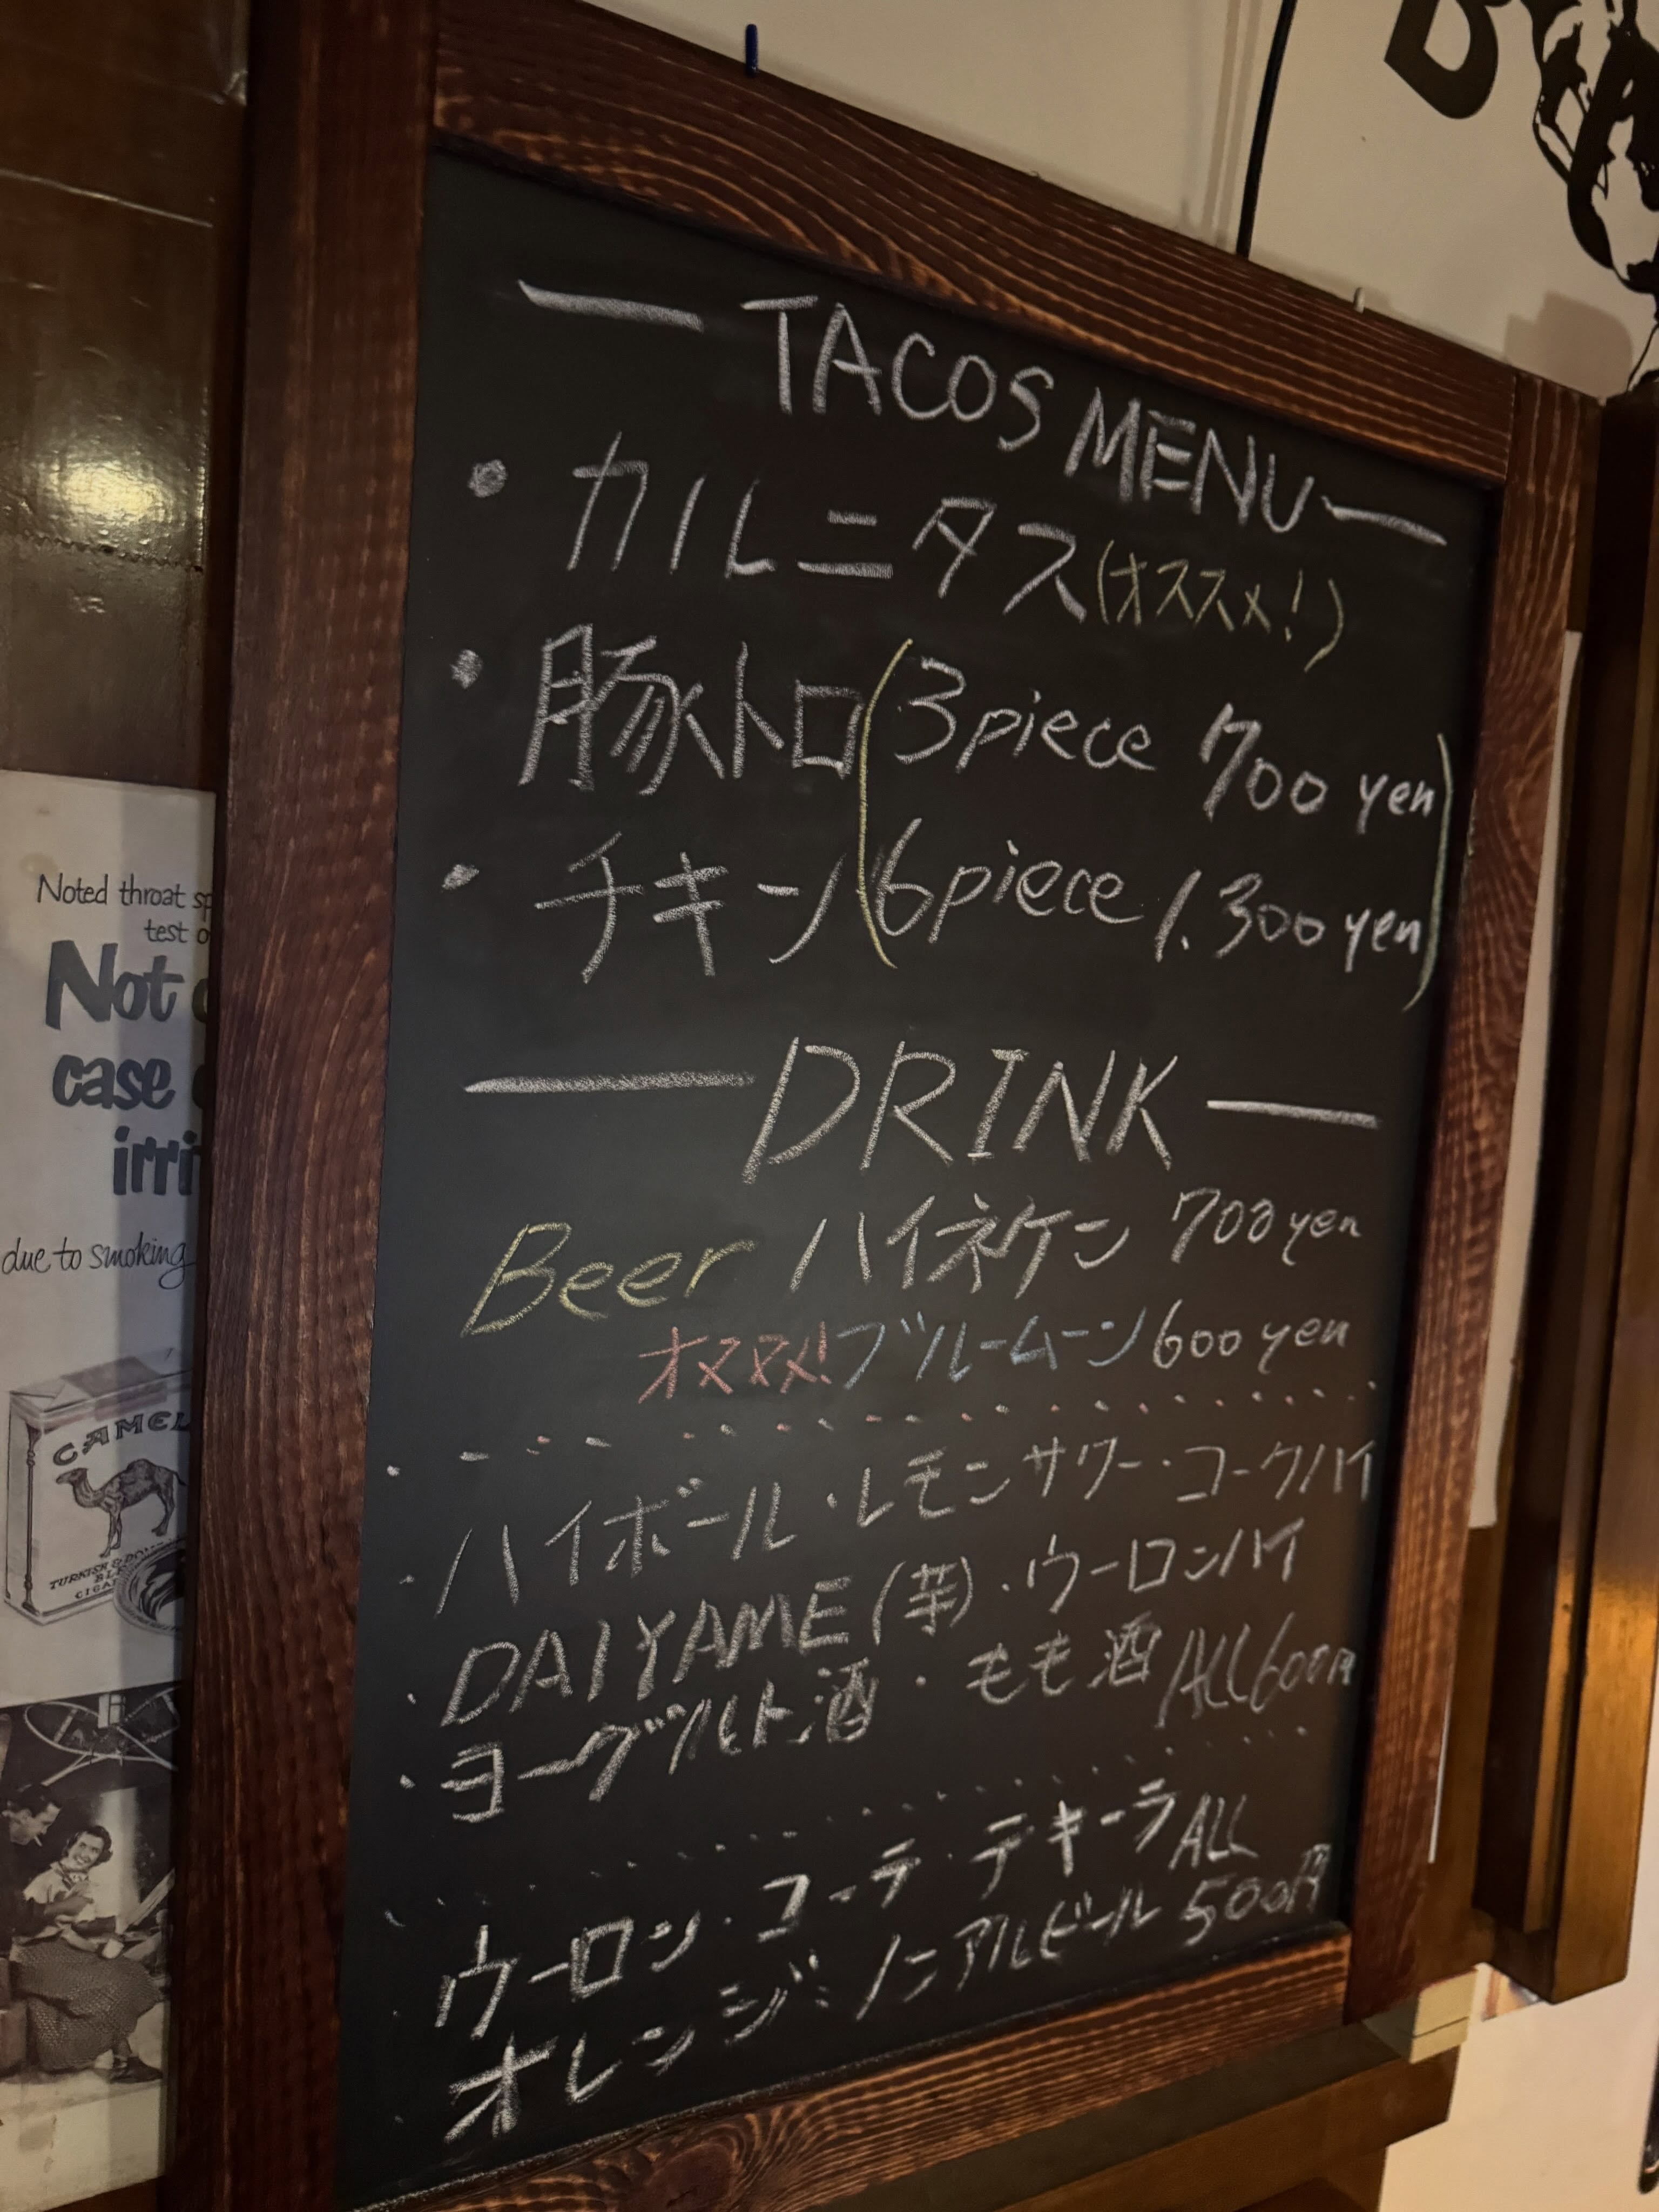 — TACOS MENU —
・カルニタス(オススメ!)
・豚トロ(3piece 700 yen)
・チキン(6piece 1.300 yen)
— DRINK —
Beer ハイネケン 700 yen
オススメ! ブルームーン 600 yen
・ハイボール・レモンサワー・コークハイ
・DAIYAME(芋)・ウーロンハイ
・ヨーグルト酒・モモ酒 ALL600円
ウーロン・コーラ・テキーラ ALL
オレンジ・ノンアルビール 500円
Noted throat
test
Not
case
due to smoking
CAMEL